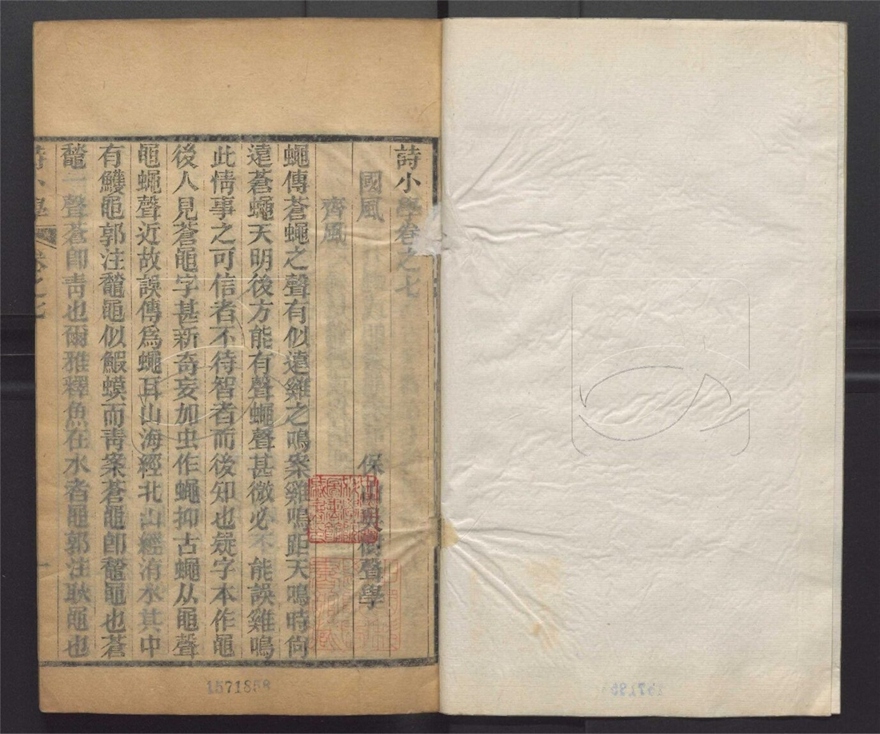 詩小學卷之七
國風
保山吳樹聲學
齊風
蠅傳蒼蠅之聲有似遠雞之鳴案雞鳴距天鳴時尙
遠蒼蠅天明後方能有聲蠅聲甚微必不能誤雞鳴
此情事之可信者不待智者而後知也疑字本作黽
後人見蒼黽字甚新奇妄加虫作蠅抑古蠅从黽聲
黽蠅聲近故誤傳爲蠅耳山海經北山經洧水其中
有鱯黽郭注鼃黽似鰕蟆而靑案蒼黽卽鼃黽也蒼
鼃一聲蒼卽靑也爾雅釋魚在水者黽郭注耿黽也
詩小學
卷之七
1571858